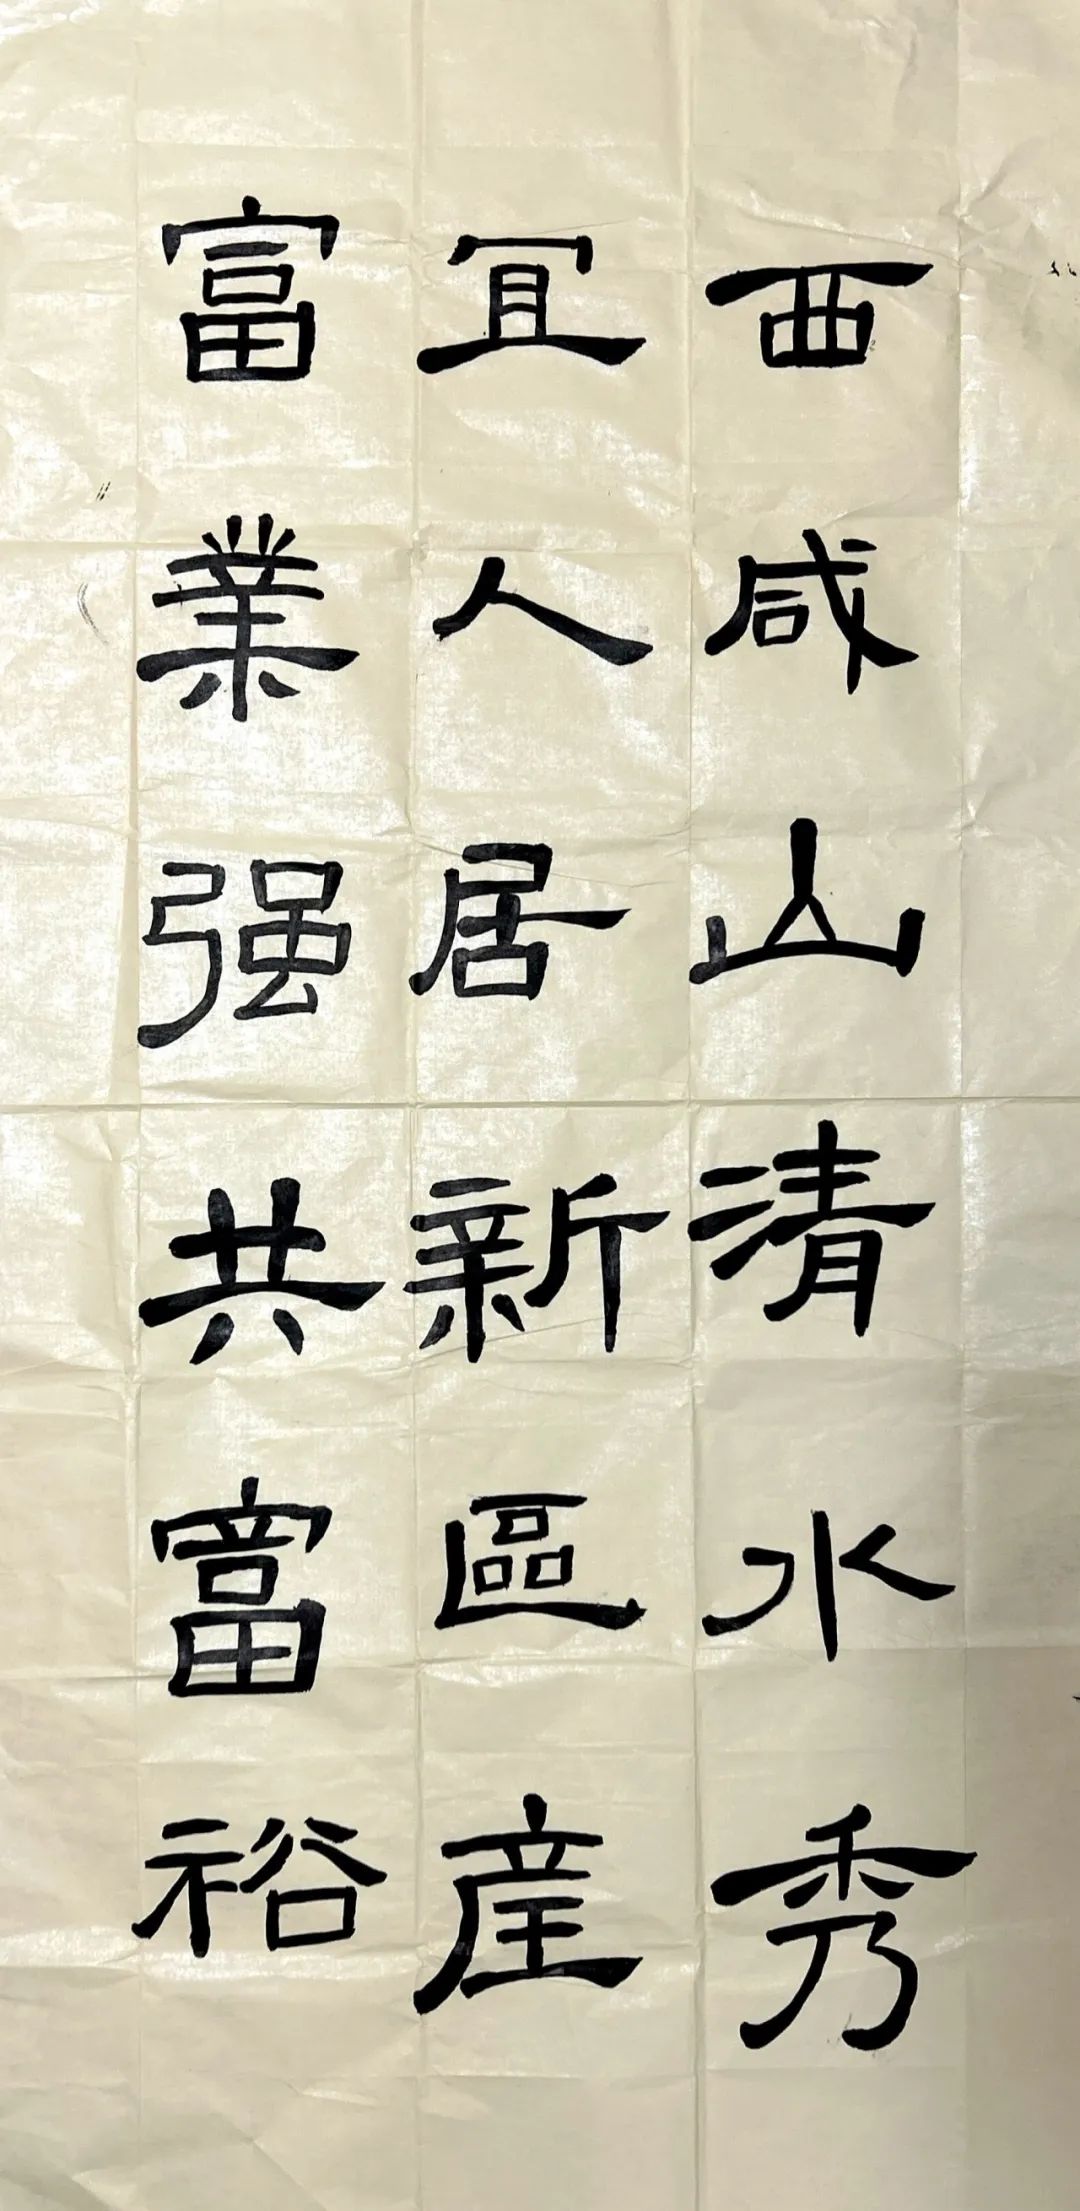 西咸山清水秀
宜人居新區産
富業强共富裕